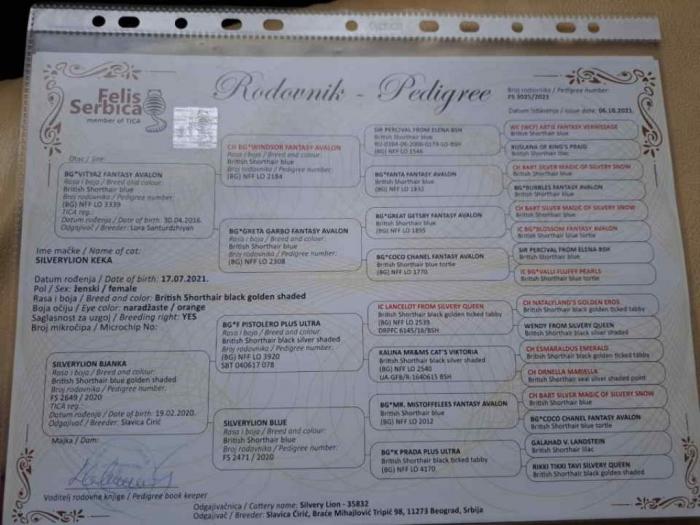 Felis
Serbica
member of TICA
Rodovnik - Pedigree
Broj rodovnika / Pedigree number:
FS 3025/2021
Datum izdavanja / Issue date: 06.10.2021.
Otac / Sire:
BG*VITYAZ FANTASY AVALON
Rasa i boja / Breed and colour:
British Shorthair blue
Broj rodovnika / Pedigree number:
(BG) NFF LO 3339
TICA reg.:
Datum rođenja / Date of birth: 30.04.2016.
Odgajivač / Breeder: Lora Santurdzhiyan
Ime mačke / Name of cat:
SILVERYLION KEKA
Datum rođenja / Date of birth: 17.07.2021.
Pol / Sex: ženski / female
Rasa i boja / Breed and color: British Shorthair black golden shaded
Boja očiju / Eye color: naradžaste / orange
Saglasnost za uzgoj / Breeding right: YES
Broj mikročipa / Microchip No:
SILVERYLION BJANKA
Rasa i boja / Breed and colour:
British Shorthair blue golden shaded
Broj rodovnika / Pedigree number:
FS 2649 / 2020
TICA reg.:
Datum rođenja / Date of birth: 19.02.2020.
Odgajivač / Breeder: Slavica Ćirić
Majka / Dam:
Voditelj rodovne knjige / Pedigree book keeper
CH BG*WINDSOR FANTASY AVALON
Rasa i boja / Breed and colour:
British Shorthair blue
Broj rodovnika / Pedigree number:
(BG) NFF LO 2184
BG*GRETA GARBO FANTASY AVALON
Rasa i boja / Breed and colour:
British Shorthair blue
Broj rodovnika / Pedigree number:
(BG) NFF LO 2308
BG*F PISTOLERO PLUS ULTRA
Rasa i boja / Breed and colour:
British Shorthair black silver shaded
Broj rodovnika / Pedigree number:
(BG) NFF LO 3920
SBT 040617 078
SILVERYLION BLUE
Rasa i boja / Breed and colour:
British Shorthair blue
Broj rodovnika / Pedigree number:
FS 2471 / 2020
SIR PERCIVAL FROM ELENA-BSH
British Shorthair blue
(BG) NFF LO 1546
BG*FANTA FANTASY AVALON
British Shorthair blue
(BG) NFF LO 1832
BG*GREAT GETSBY FANTASY AVALON
British Shorthair blue
(BG) NFF LO 1895
BG*COCO CHANEL FANTASY AVALON
British Shorthair blue tortie
(BG) NFF LO 1770
IC LANCELOT FROM SILVERY QUEEN
British Shorthair black golden ticked tabby
(BG) NFF LO 2539
DRPFC 6145/16/BSH
KALINA MR&MS CAT'S VIKTORIA
British Shorthair black silver shaded
(BG) NFF LO 2540
UA-GFB/R-1640615 BSH
BG*MR. MISTOFFELEES FANTASY AVALON
British Shorthair blue
(BG) NFF LO 2012
BG*K PRADA PLUS ULTRA
British Shorthair black ticked tabby
(BG) NFF LO 4170
WC (WCF) ARTIE FANTASY VERNISSAGE
British Shorthair blue
RUSLANA OF KING'S PRAID
British Shorthair lilac
CH BART SILVER MAGIC OF SILVERY SNOW
British Shorthair blue
BG*BUBBLES FANTASY AVALON
British Shorthair blue
CH BART SILVER MAGIC OF SILVERY SNOW
British Shorthair blue
IC BG*BLOSSOM FANTASY AVALON
British Shorthair blue tortie
SIR PERCIVAL FROM ELENA-BSH
British Shorthair blue
IC BG*VALLI FLUFFY PEARLS
British Shorthair blue tortie
CH NATALYLAND'S GOLDEN EROS
British Shorthair black golden ticked tabby
WENDY FROM SILVERY QUEEN
British Shorthair black silver shaded
CH ESMARALDUS EMERALD
British Shorthair black golden ticked tabby
CH ORNELLA MARSELLA
British Shorthair seal silver shaded point
CH BART SILVER MAGIC OF SILVERY SNOW
British Shorthair blue
BG*COCO CHANEL FANTASY AVALON
British Shorthair blue tortie
GALAHAD V. LANDSTEIN
British Shorthair lilac
RIKKI TIKKI TAVI SILVERY QUEEN
British Shorthair black golden shaded
Odgajivačnica / Cattery name: Silvery Lion - 35832
Odgajivač / Breeder: Slavica Ćirić, Braće Mihajlović Tripić 98, 11273 Beograd, Srbija